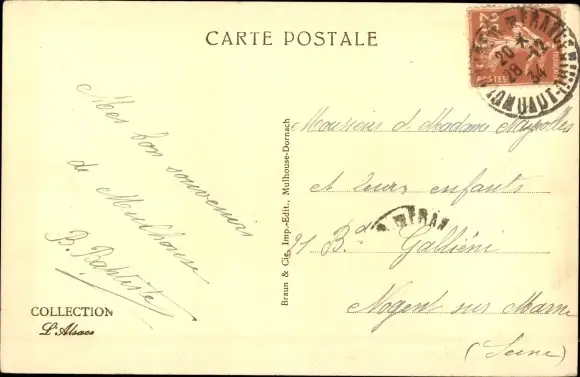 CARTE POSTALE
Mes bon souvenirs
de Mulhouse
B. Baptiste
COLLECTION
L'Alsace
Braun & Cie, Imp.-Edit., Mulhouse-Dornach
Monsieur et Madame
et leurs enfants
91 Bd Galliéni
Nogent sur Marne
(Seine)
POSTES
20
28 12
34